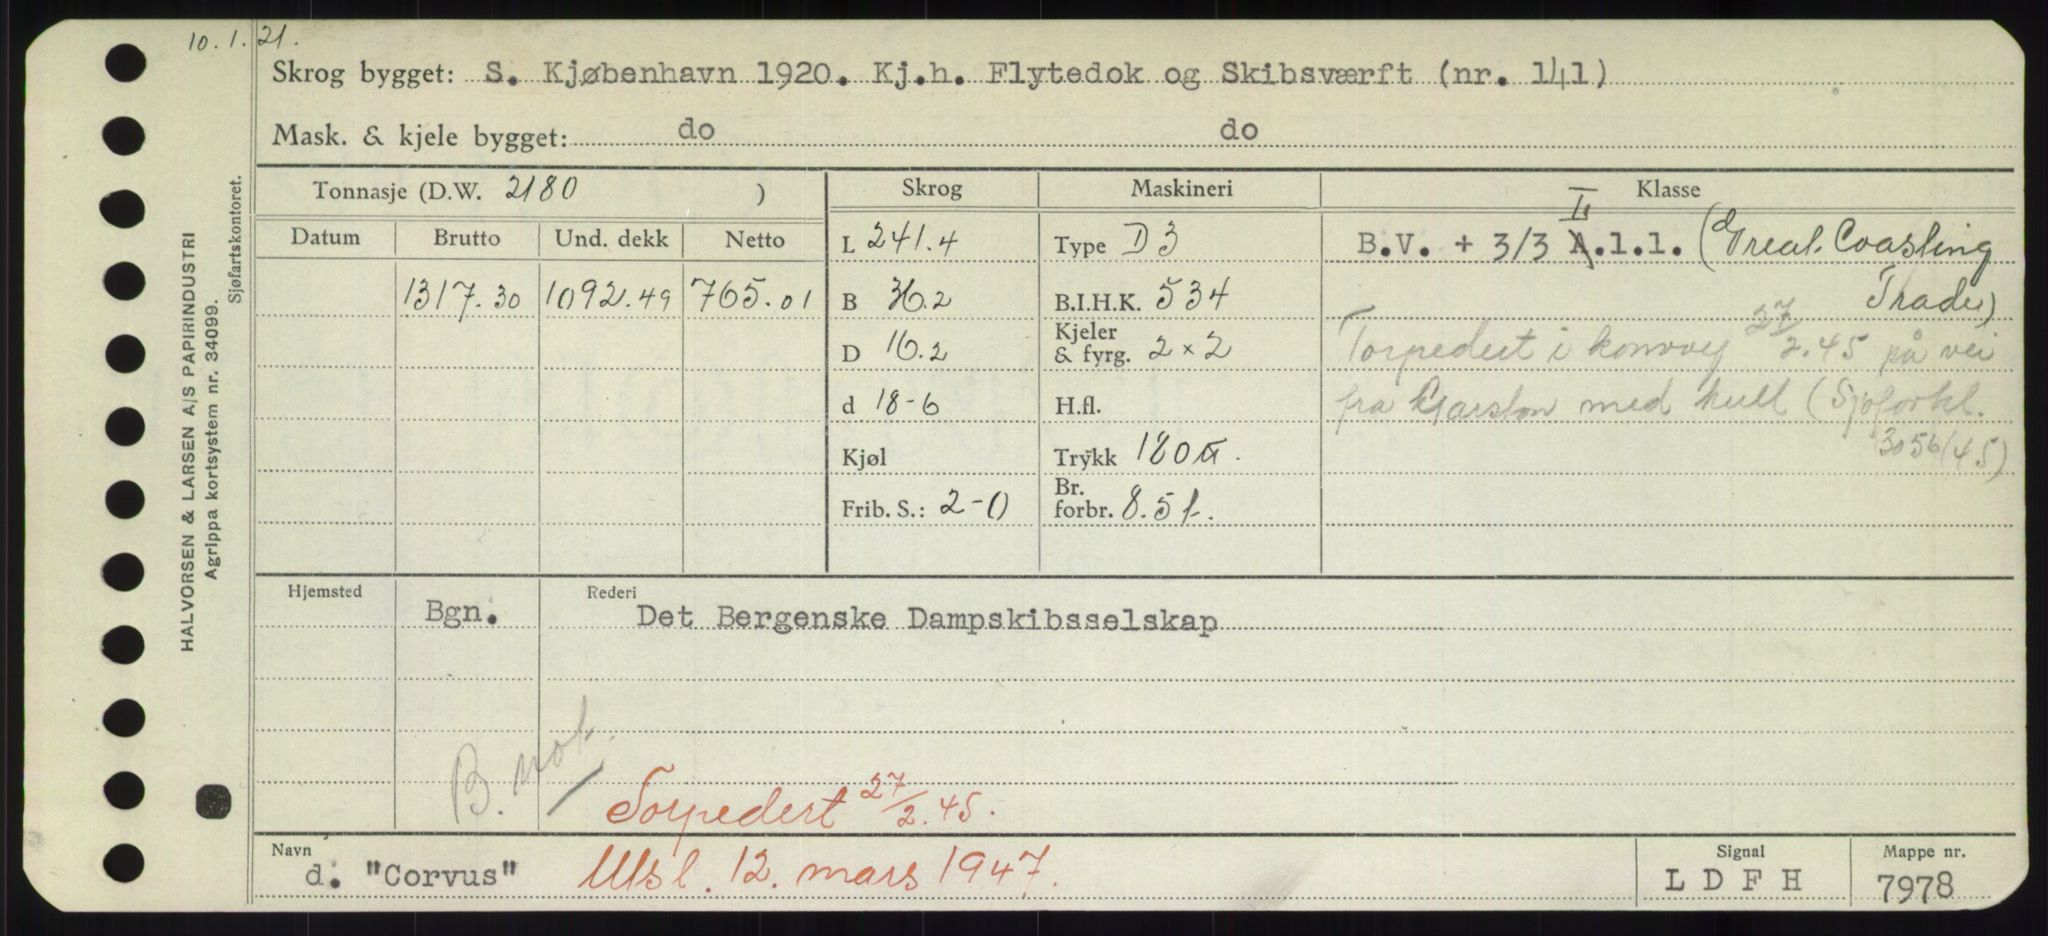 10.1.21.
Skrog bygget: S. Kjøbenhavn 1920. Kj.h. Flytedok og Skibsværft (nr. 141)
Mask. & kjele bygget: do do
Tonnasje (D.W. 2180 ) Skrog Maskineri Klasse
Datum Brutto Und. dekk Netto L 241.4 Type D3 B.V. + 3/3 A.1.1. (Great Coasting
I
1317.30 1092.49 765.01 B 36.2 B.I.H.K. 534 Trade)
D 16.2 Kjeler & fyrg. 2 x 2 Torpedert i konvoy 27/2.45 på vei
d 18-6 H.fl. fra Garston med kull (Sjøforkl.
Kjøl Trykk 180 3056/45)
Frib. S.: 2-0 Br. forbr. 8.5 t.
Hjemsted Bgn. Rederi Det Bergenske Dampskibsselskap
B. not.
Torpedert 27/2.45.
Navn d. "Corvus" Utsl. 12. mars 1947. Signal LDFH Mappe nr. 7978
HALVORSEN & LARSEN A/S PAPIRINDUSTRI
Agrippa kortsystem nr. 34099.
Sjøfartskontoret.